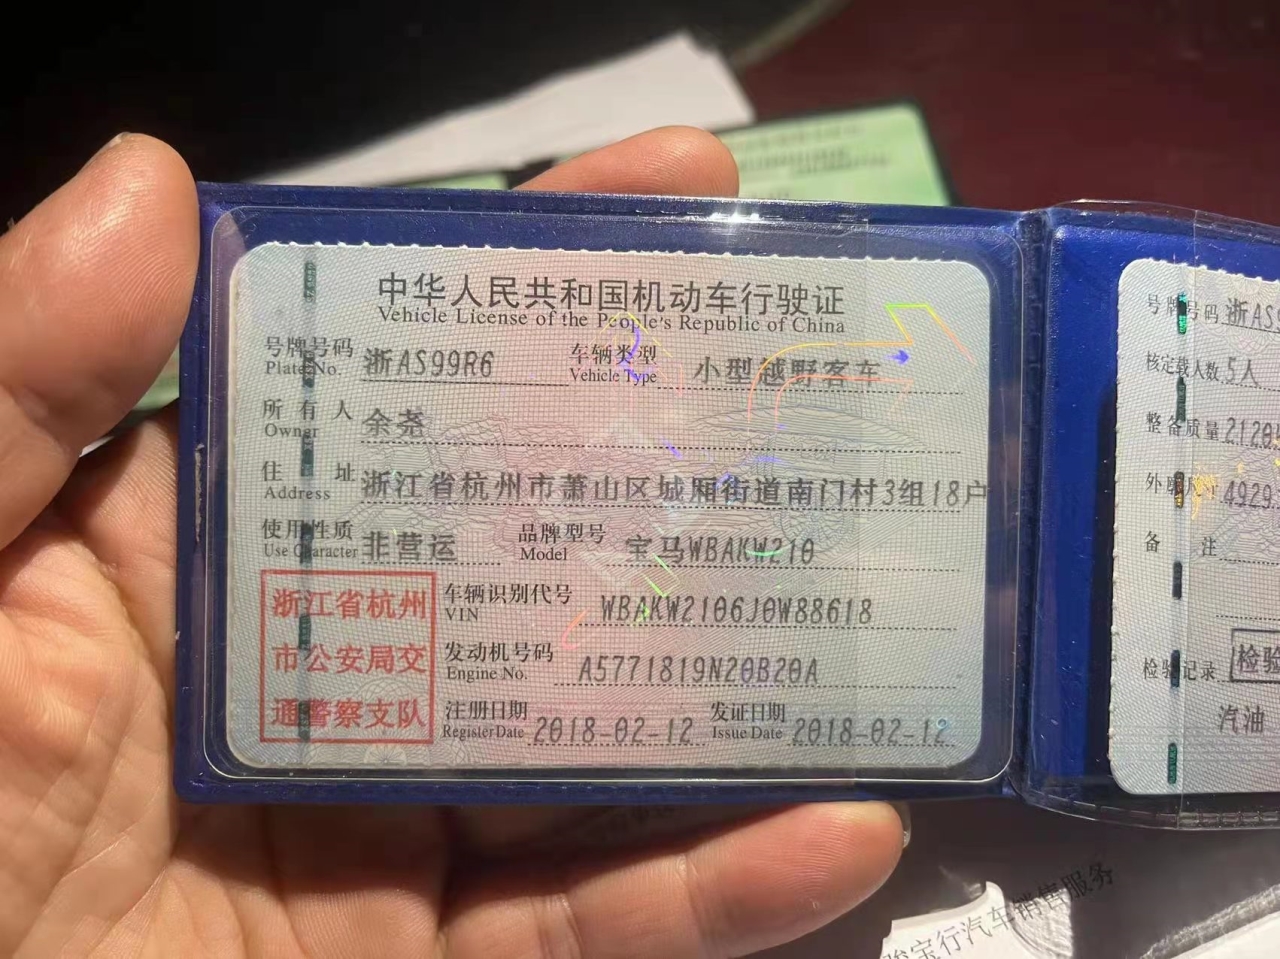 中华人民共和国机动车行驶证
Vehicle License of the People's Republic of China
号牌号码 浙AS99R6 车辆类型 小型越野客车
Plate No. Vehicle Type
所有人 余尧
Owner
住址 浙江省杭州市萧山区城厢街道南门村3组18户
Address
使用性质 非营运 品牌型号 宝马WBAKW210
Use Character Model
浙江省杭州
市公安局交
通警察支队
车辆识别代号 WBAKW2106J0W88618
VIN
发动机号码 A5771819N20B20A
Engine No.
注册日期 2018-02-12 发证日期 2018-02-12
Register Date Issue Date
号牌号码 浙AS
核定载人数 5人
整备质量 2120
外廓尺寸 4929
备注
检验记录 检验
汽油
宝行汽车销售服务